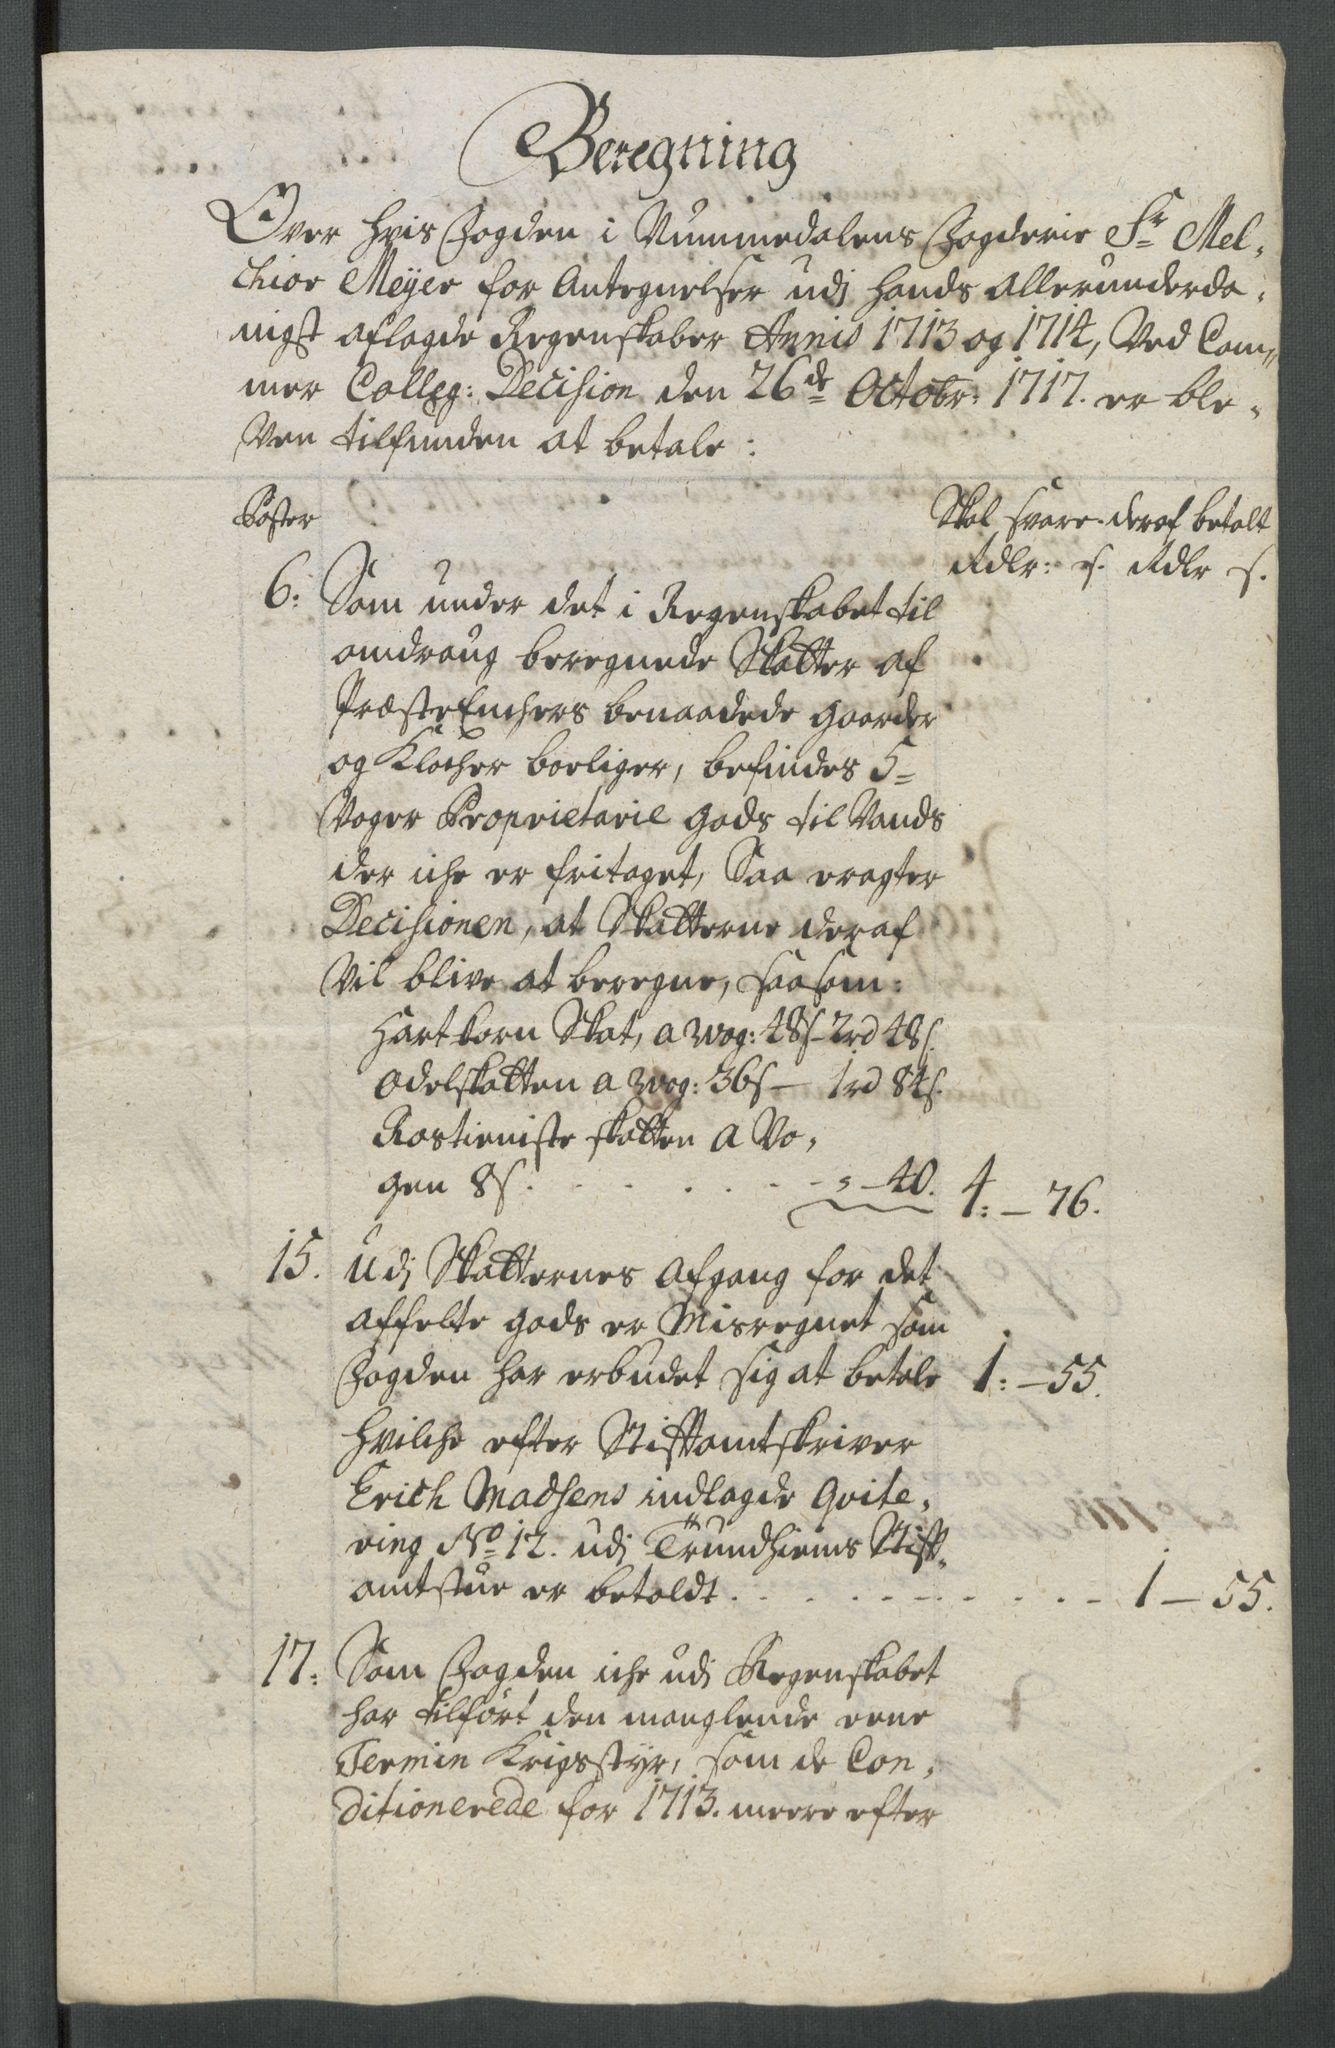 Beregning
Over hvis Fogden i Nummedalens Fogderie Sr Mel-
chior Meÿer for Antegnelser udj hands allerunderda-
nigst aflagde Regenskaber Annis 1713 og 1714, Ved Cam-
mer Colleg: Decision den 26de Octobr: 1717. er ble-
ven tilfunden at betale:
Poster
Skal svare. deraf betalt
Rdlr: s. Rdlr s.
6: Som under det i Regenskabet til
omdraug beregnede Skatter af
Præste Enchers benaadede gaarder
og Klocher boeliger, befindes 5=
Voger Proprietarie gods til Vands
der iche er fritaget, Saa eragter
Decisionen, at Skatterne deraf
vil blive at beregne, saasom:
Hartkorn Skat, a wog: 48s - 2rd 48s.
Odelskatten a wog: 36s - 1rd 84s.
Rostieniste skatten a Vo-
gen 8s. - - - - - - - 40. 4: - 76.
15. Udj Skatternes Afgang for det
affelte gods er Misregnet som
Fogden har erbudet sig at betale 1: - 55.
hvilche efter Stiftamtskriver
Erich Madsens indlagde Qvite-
ring No 12. udj Trundhiems Stift-
amtstue er betaldt. - - - - - - - 1 - 55.
17: Som Fogden iche udj Regenskabet
har tilført den manglende eene
Termin Krigsstÿr, som de Con-
ditionerede for 1713. meere efter